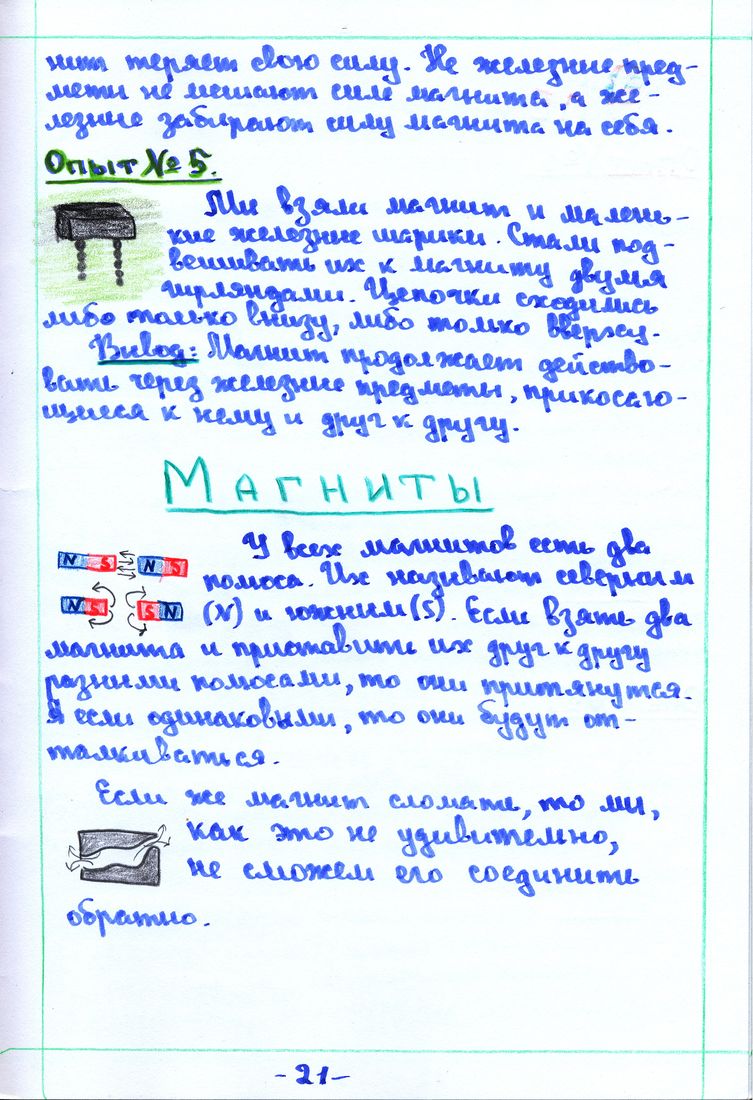 нит теряет свою силу. Не железные пред-
меты не мешают силе магнита, а же-
лезные забирают силу магнита на себя.
Опыт № 5.
Мы взяли магнит и малень-
кие железные шарики. Стали под-
вешивать их к магниту двумя
гирляндами. Цепочки сходились
либо только внизу, либо только вверху.
Вывод: Магнит продолжает действо-
вать через железные предметы, прикосаю-
щиеся к нему и друг к другу.
Магниты
У всех магнитов есть два
N S N S
полюса. Их называют северным
N S S N
(N) и южным (S). Если взять два
магнита и приставить их друг к другу
разными полюсами, то они притянутся.
А если одинаковыми, то они будут от-
талкиваться.
Если же магнит сломать, то мы,
как это не удивительно,
не сможем его соединить
обратно.
-21-